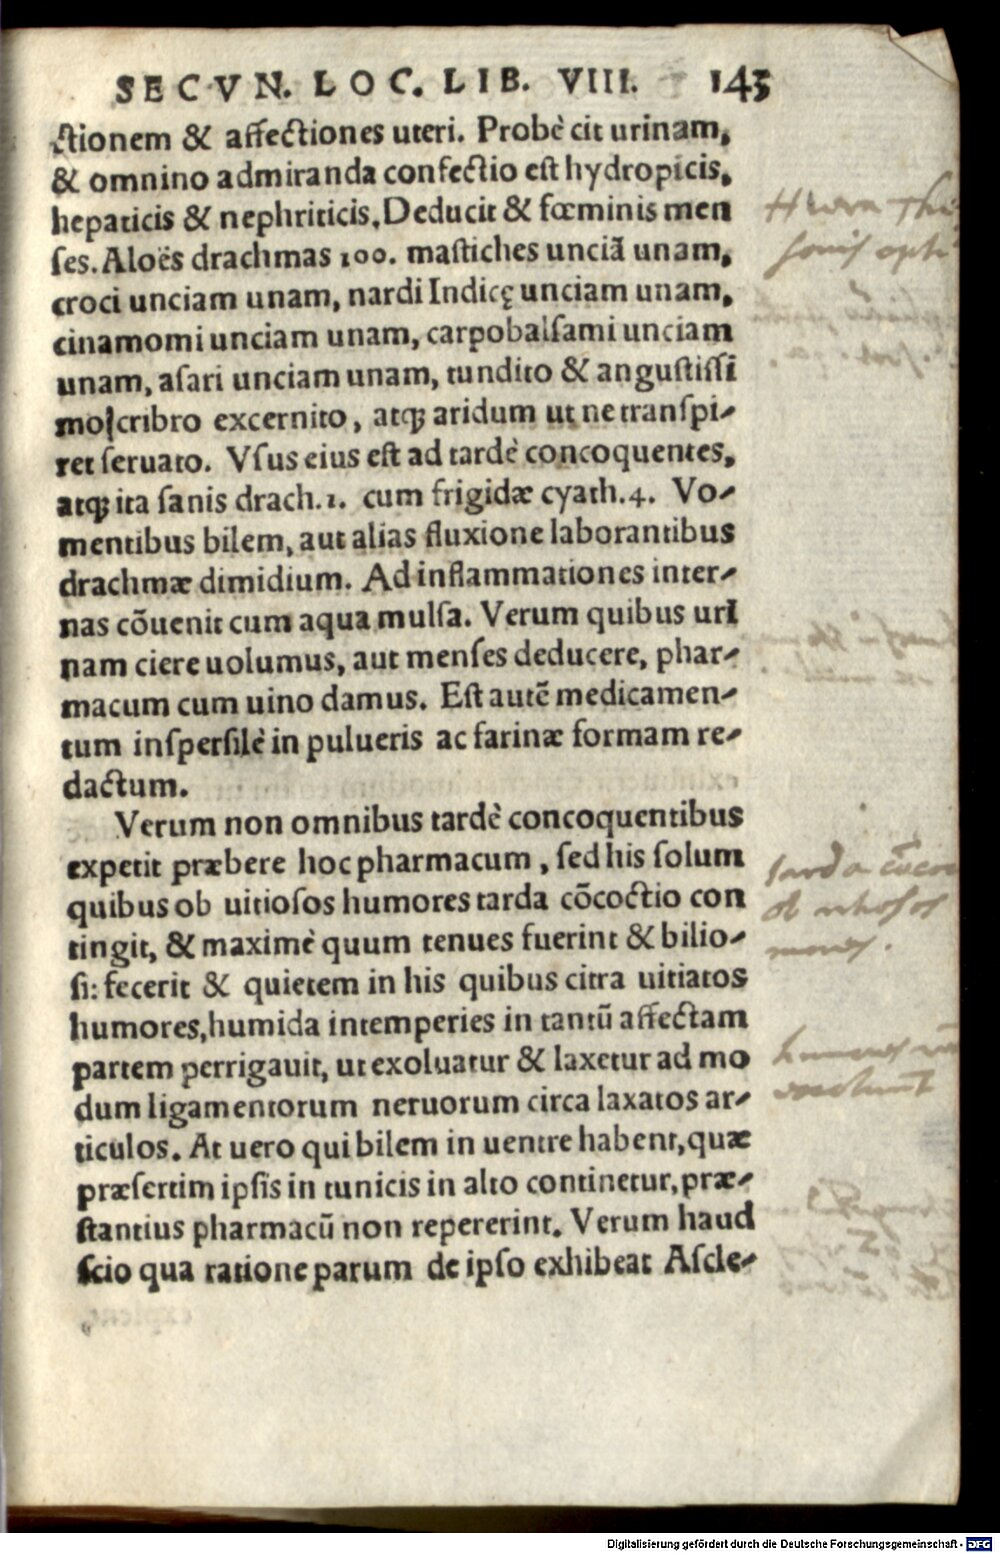 SECVN. LOC. LIB. VIII. 145
ctionem & affectiones uteri. Probè cit urinam,
& omnino admiranda confectio est hydropicis,
hepaticis & nephriticis. Deducit & fœminis men
ses. Aloës drachmas 100. mastiches unciã unam,
croci unciam unam, nardi Indicę unciam unam,
cinamomi unciam unam, carpobalsami unciam
unam, asari unciam unam, tundito & angustissi
mo cribro excernito, atq; aridum ut ne transpi-
ret seruato. Vsus eius est ad tardè concoquentes,
atq; ita sanis drach. 1. cum frigidæ cyath. 4. Vo-
mentibus bilem, aut alias fluxione laborantibus
drachmæ dimidium. Ad inflammationes inter-
nas cõuenit cum aqua mulsa. Verum quibus uri
nam ciere uolumus, aut menses deducere, phar-
macum cum uino damus. Est autẽ medicamen-
tum inspersilè in pulueris ac farinæ formam re-
dactum.
Verum non omnibus tardè concoquentibus
expetit præbere hoc pharmacum, sed his solum
quibus ob uitiosos humores tarda cõcoctio con
tingit, & maximè quum tenues fuerint & bilio-
si: fecerit & quietem in his quibus citra uitiatos
humores, humida intemperies in tantũ affectam
partem perrigauit, ut exoluatur & laxetur ad mo
dum ligamentorum neruorum circa laxatos ar-
ticulos. At uero qui bilem in uentre habent, quæ
præsertim ipsis in tunicis in alto continetur, præ-
stantius pharmacũ non repererint. Verum haud
scio qua ratione parum de ipso exhibeat Ascle-
Digitalisierung gefördert durch die Deutsche Forschungsgemeinschaft - DFG